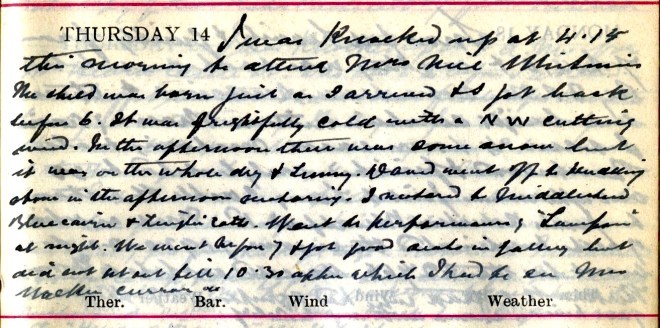 THURSDAY 14 I was knocked up at 4.15
this morning to attend Mrs Neil
The child was born just as I arrived & I got back
before 6. It was frightfully cold with a NW cutting
wind. In the afternoon there was some snow but
it was on the whole dry & sunny. David went off to
in the afternoon motoring. I motored to
Bluecairn & . Went to performance of
at night. We went before 7 & got good seats in gallery but
did not get out till 10.30 after which I had to see Mrs
Walker
Ther. Bar. Wind Weather